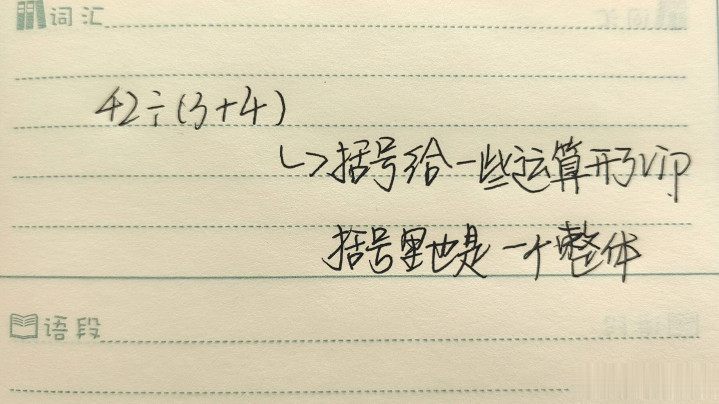 词汇
42÷(3+4)
↳括号给一些运算开vip
括号里也是一个整体
语段